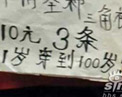 三角
10元 3条
1岁穿到100岁